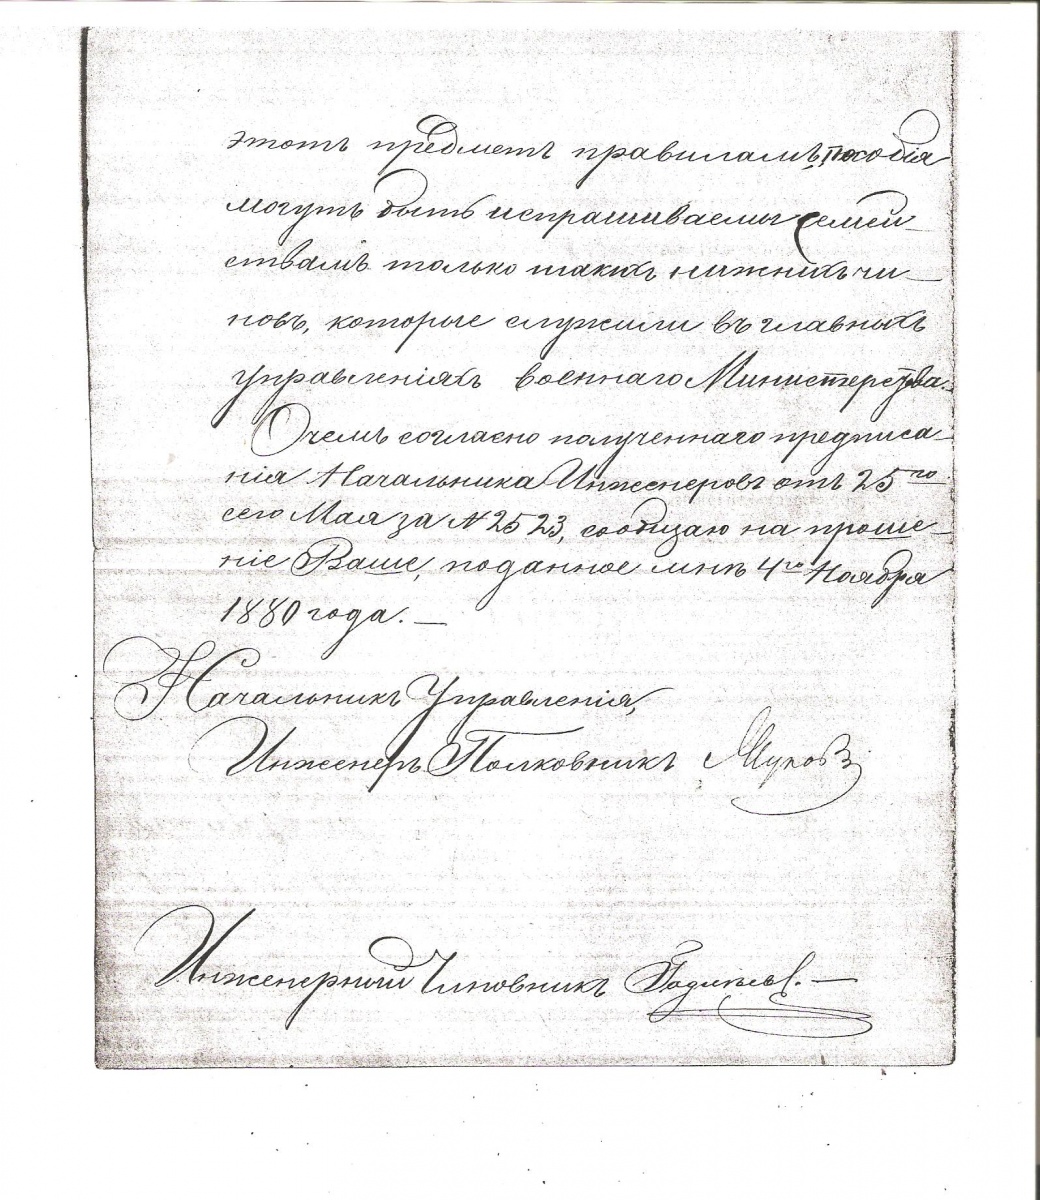 этотъ предметъ правиламъ, пособія
могутъ быть испрашиваемы семей-
ствамъ только такихъ нижнихъ чи-
новъ, которые служили въ главныхъ
управленіяхъ военнаго Министерства.-
О чемъ согласно полученнаго предписа-
нія Начальника Инженеровъ отъ 25го
сего Мая за № 2523, сообщаю на проше-
ніе Ваше, поданное мнѣ 4го Ноября
1880 года. —
Начальникъ Управленія,
Инженеръ Полковникъ
Инженерный Чиновникъ